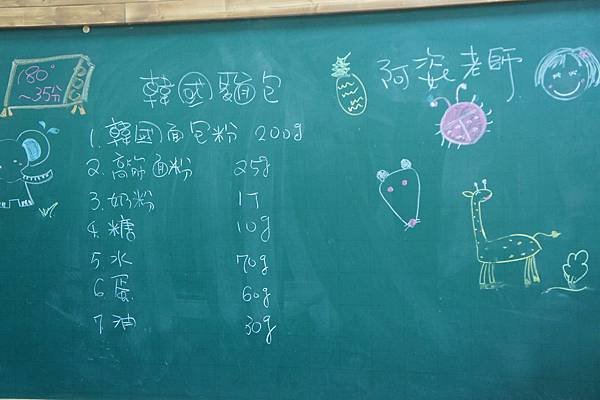 180°
~35分
韓国麵包
阿姿老師
1. 韓國面包粉 200g
2. 高筋面粉 25g
3. 奶粉 1T
4. 糖 10g
5 水 70g
6 蛋 60g
7. 油 30g